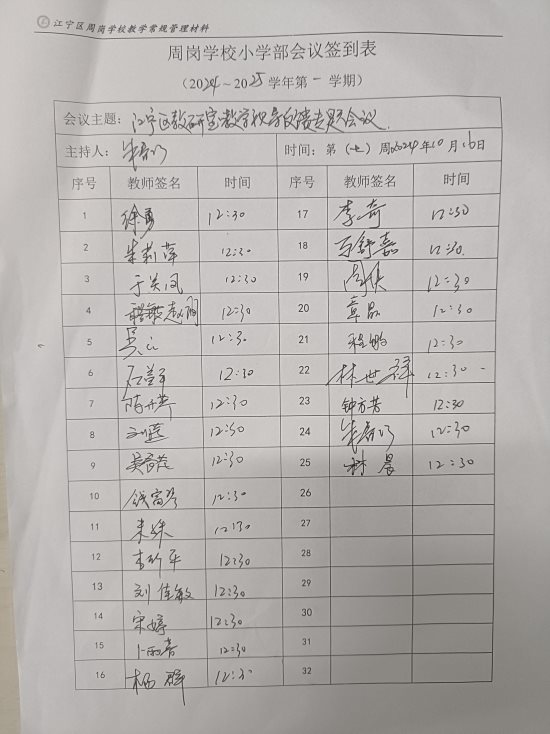 江宁区周岗学校教学常规管理材料
周岗学校小学部会议签到表
（2024～2025学年第一学期）
会议主题：江宁区教研室教学视导反馈专题会议
主持人： 时间：第（七）周2024年10月16日
序号 教师签名 时间 序号 教师签名 时间
1 徐勇 12:30 17 李奇 12:30
2 朱莉萍 12:30 18 舒嘉 12:30.
3 于关凤 12:30 19 12:30
4 12:30 20 章昂 12:30
5 吴 12:30 21 程鹏 12:30
6 12:30 22 林世祥 12:30
7 12:30 23 钟方芳 12:30
8 刘莲 12:30 24 12:30
9 12:30 25 林晨 12:30
10 钱富琴 12:30 26
11 朱妹 12:30 27
12 12:30 28
13 刘佳敏 12:30 29
14 宋婷 12:30 30
15 卜雨春 12:30 31
16 杨群 12:30 32